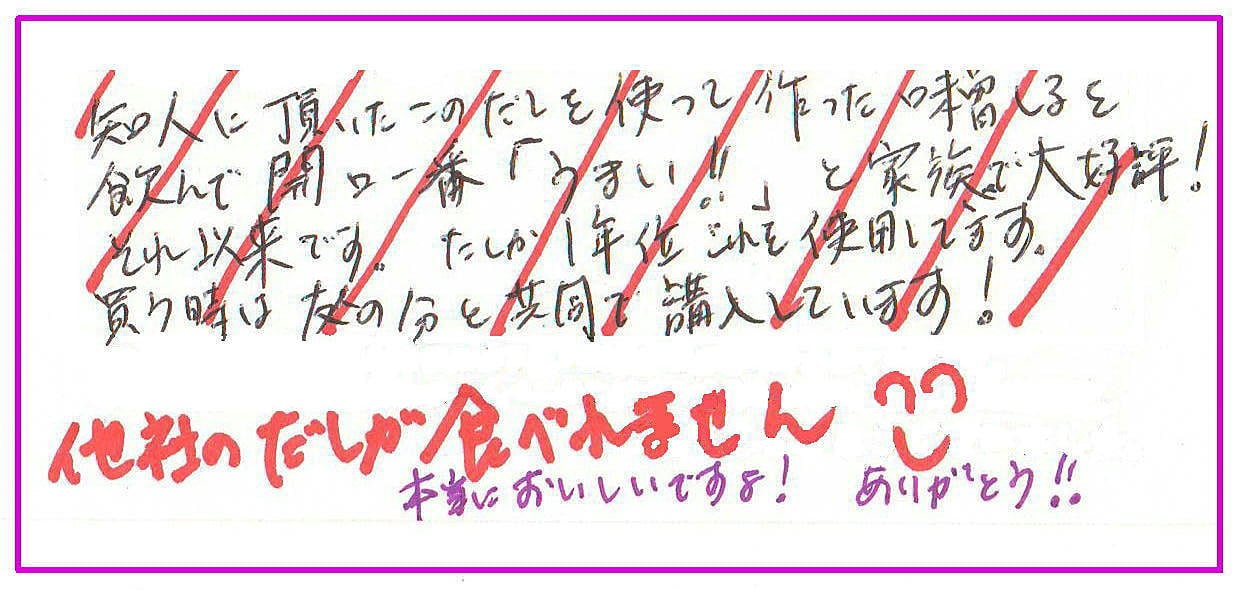 知人に頂いたこのだしを使って作った味噌しるを
飲んで開口一番「うまい!!」と家族で大好評!
それ以来です。たしか1年位これを使用してます。
買う時は友の分と共同で購入しています!
他社のだしが食べれません
本当においしいですよ! ありがとう!!